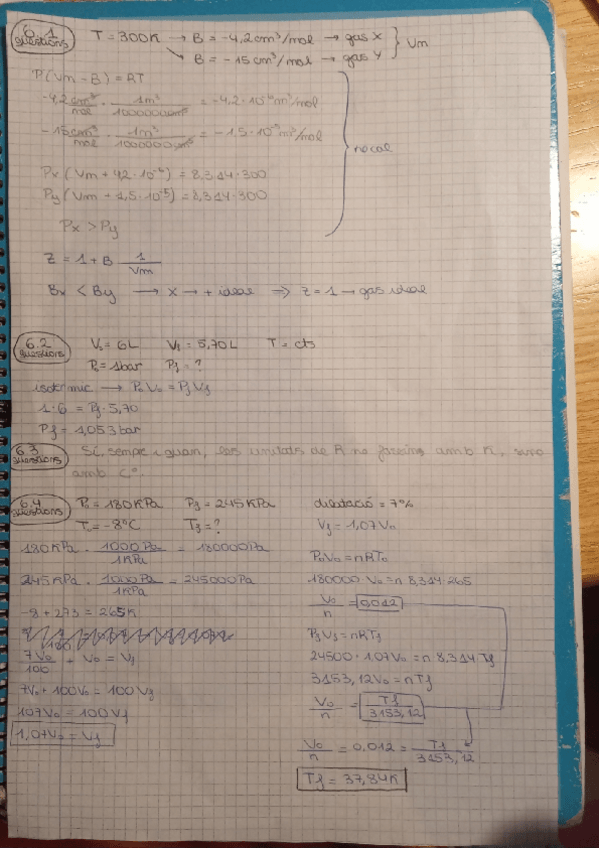 6.1 questions T = 300K → B = -4,2 cm³/mol → gas X } Vm
→ B = -15 cm³/mol → gas Y
P(Vm - B) = RT
-4,2 cm³/mol · 1m³/1000000cm³ = -4,2·10⁻⁶ m³/mol
-15 cm³/mol · 1m³/1000000cm³ = -1,5·10⁻⁵ m³/mol
no cal
Px (Vm + 4,2·10⁻⁶) = 8,314·300
Py (Vm + 1,5·10⁻⁵) = 8,314·300
Px > Py
Z = 1 + B 1/Vm
Bx < By → X → + ideal ⇒ Z = 1 → gas ideal
6.2 questions V₀ = 6L Vf = 5,70L T = ct
P₀ = 1bar Pf = ?
isotèrmic → P₀V₀ = PfVf
1·6 = Pf·5,70
Pf = 1,053 bar
6.3 questions Sí, sempre i quan, les unitats de R no amb K, sino
amb C°.
6.4 questions P₀ = 180KPa Pf = 245KPa dilatació = 7%
T₀ = -8°C Tf = ? Vf = 1,07V₀
180KPa · 1000Pa/1KPa = 180000Pa
245KPa · 1000Pa/1KPa = 245000Pa
-8 + 273 = 265K
7V₀/100 + V₀ = Vf
7V₀ + 100V₀ = 100Vf
107V₀ = 100Vf
1,07V₀ = Vf
P₀V₀ = nRT₀
180000 V₀ = n 8,314·265
V₀/n = 0,012
PfVf = nRTf
24500·1,07V₀ = n 8,314 Tf
3153,12V₀ = nTf
V₀/n = Tf/3153,12
V₀/n = 0,012 = Tf/3153,12
Tf = 37,84K